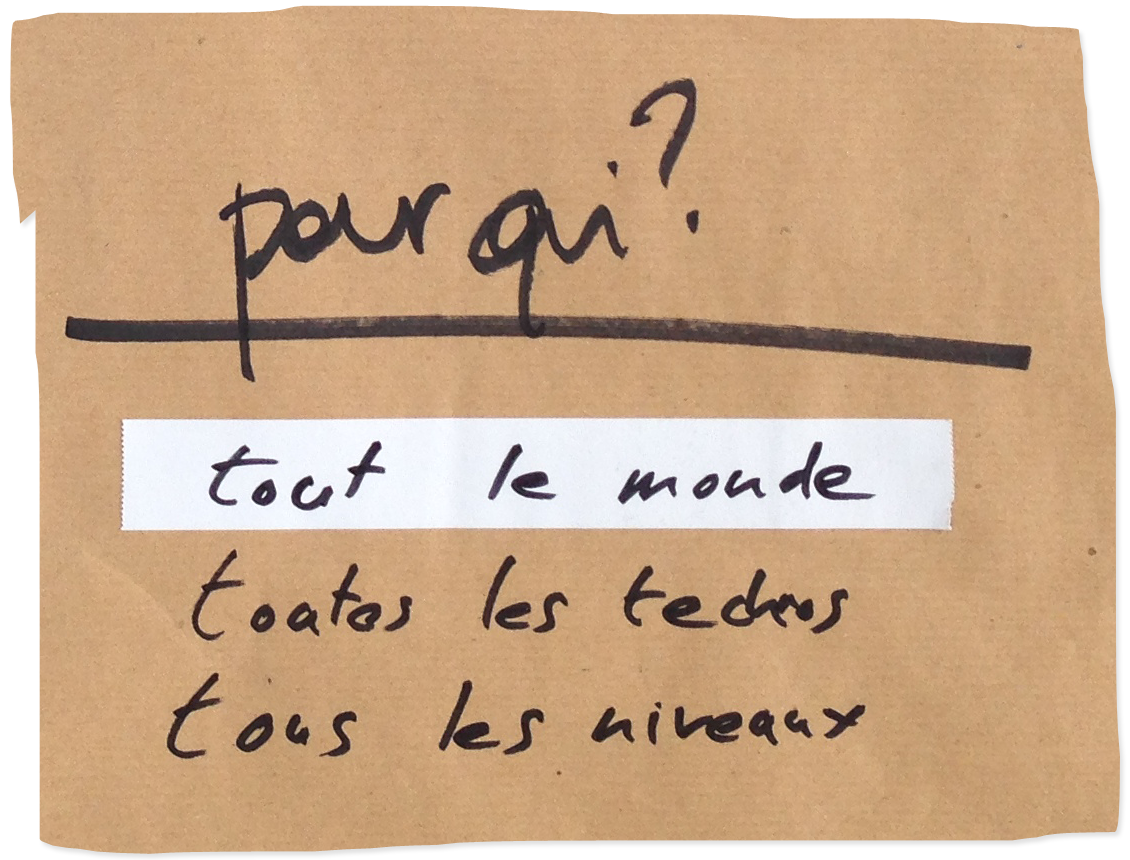 pour qui?
tout le monde
toutes les technos
tous les niveaux